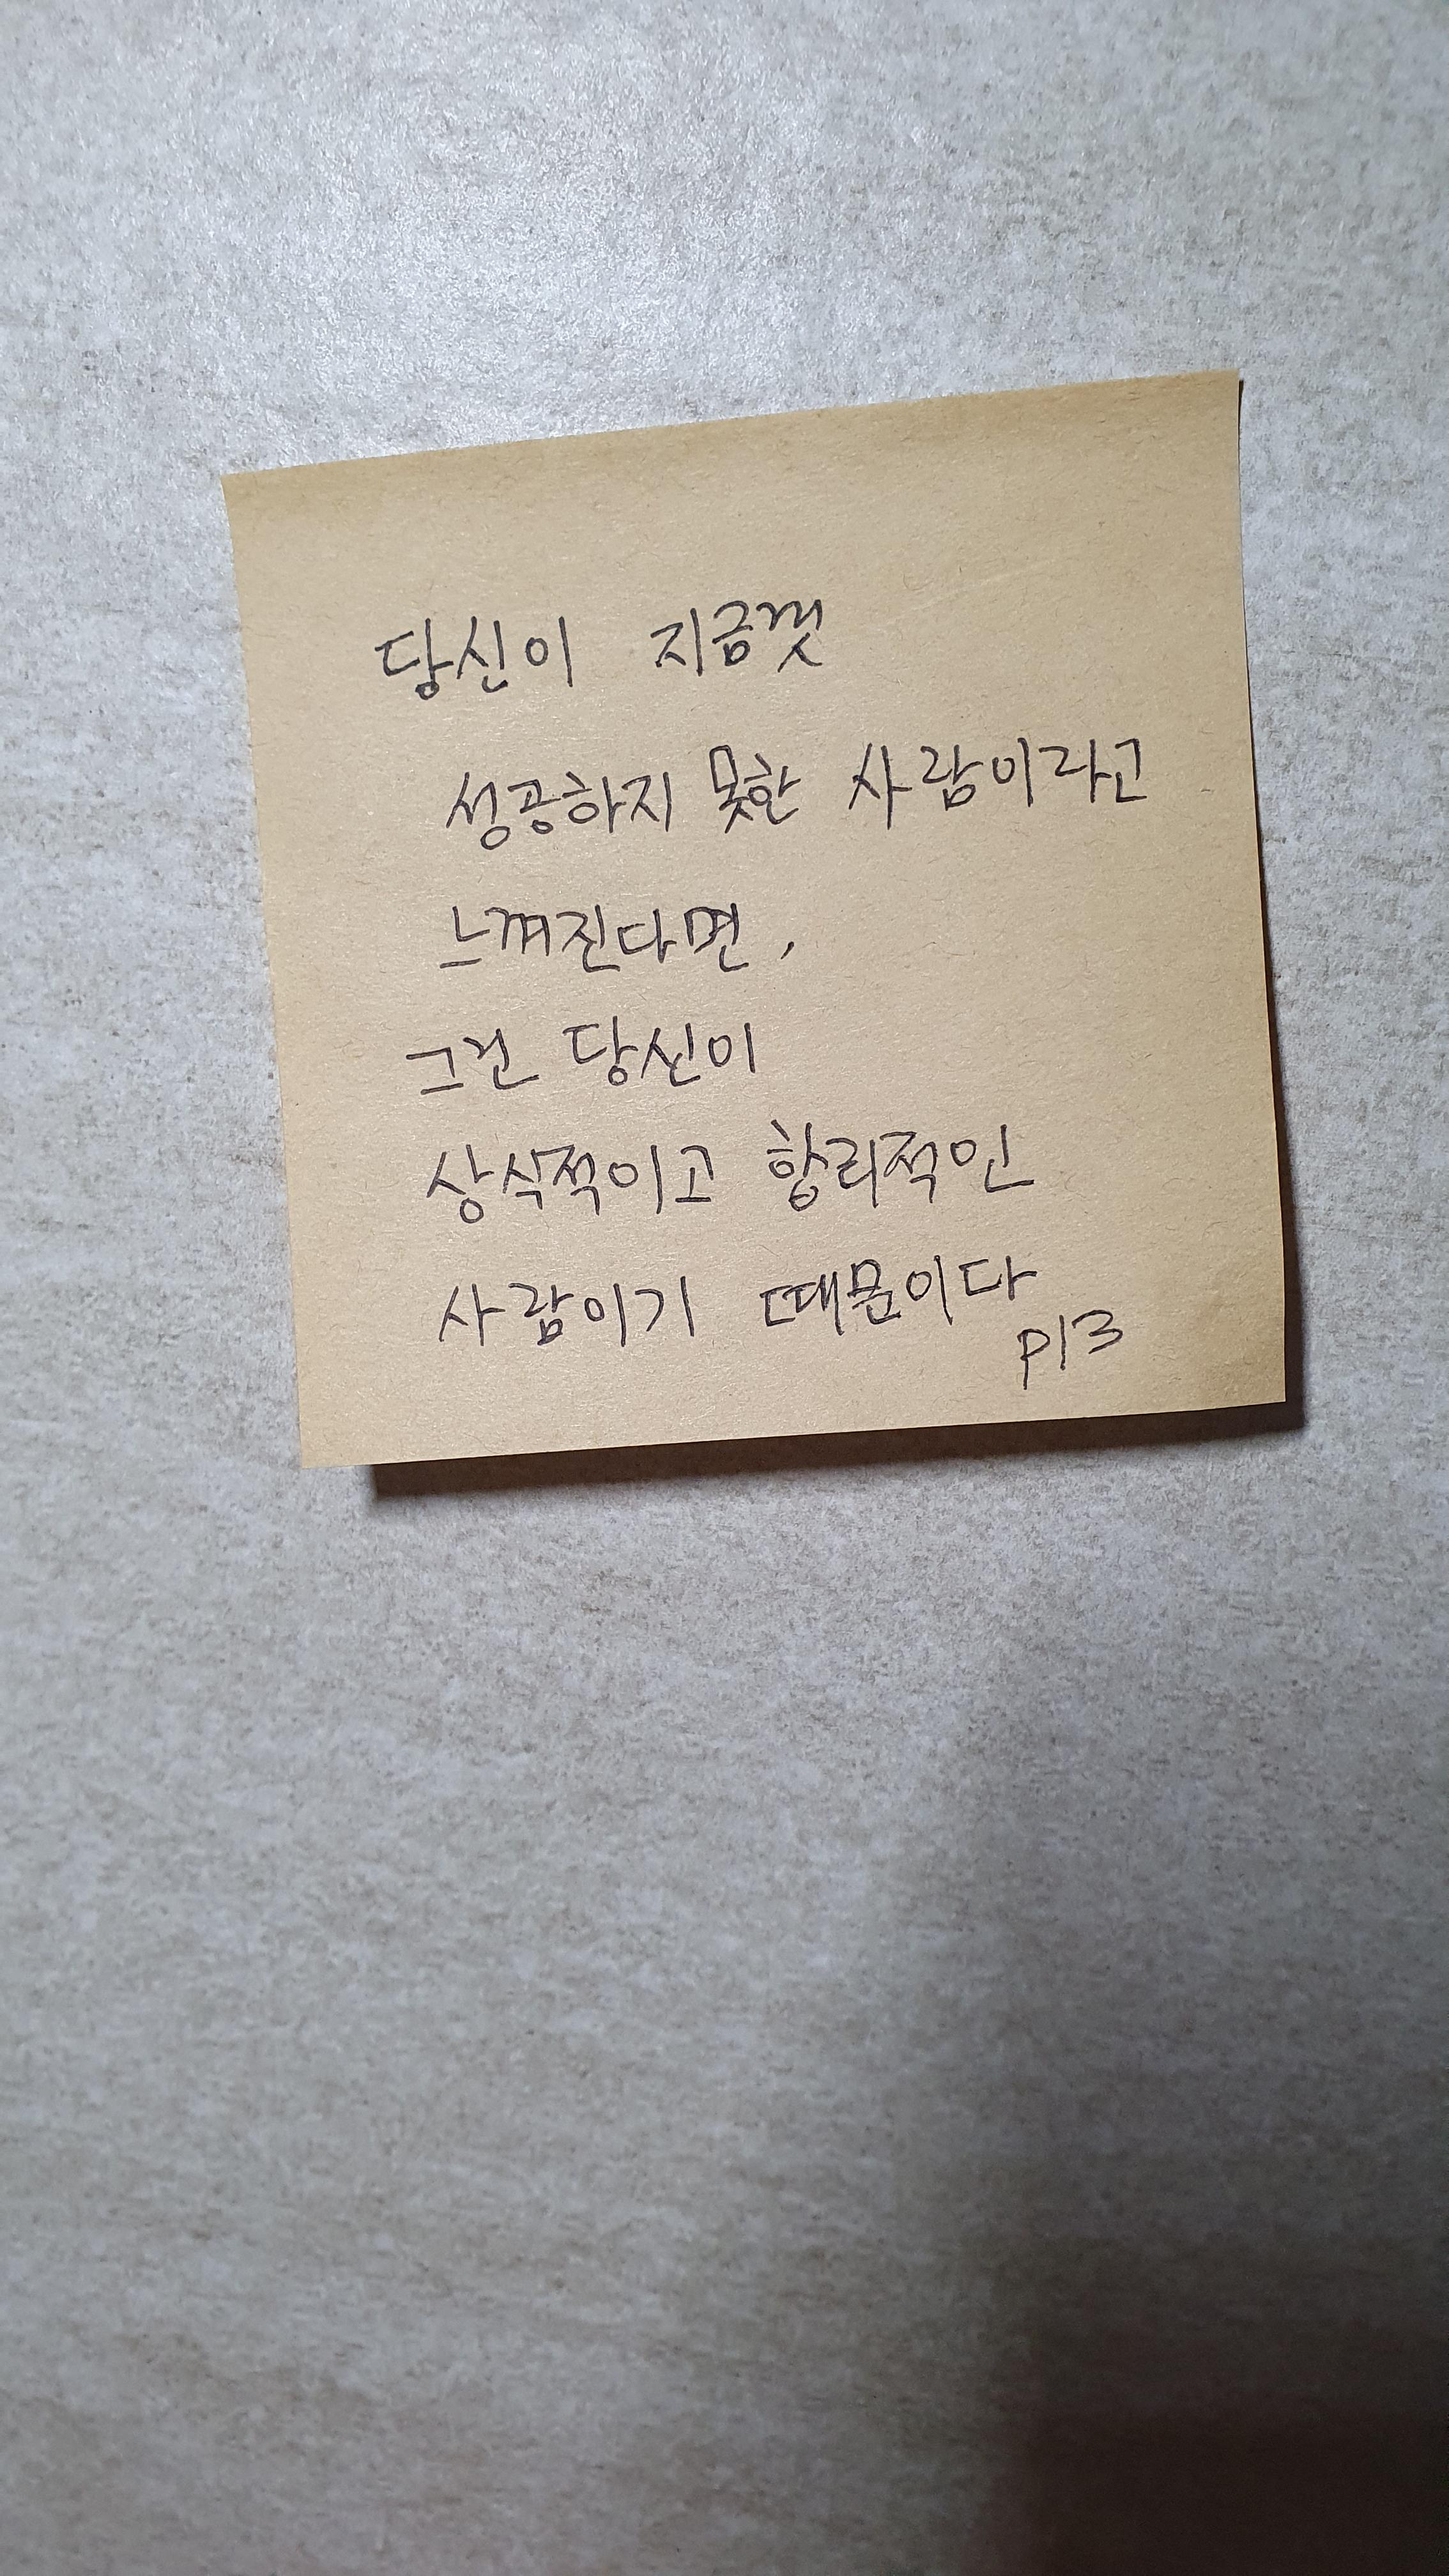 당신이 지금껏
성공하지 못한 사람이라고
느껴진다면,
그건 당신이
상식적이고 합리적인
사람이기 때문이다
p13